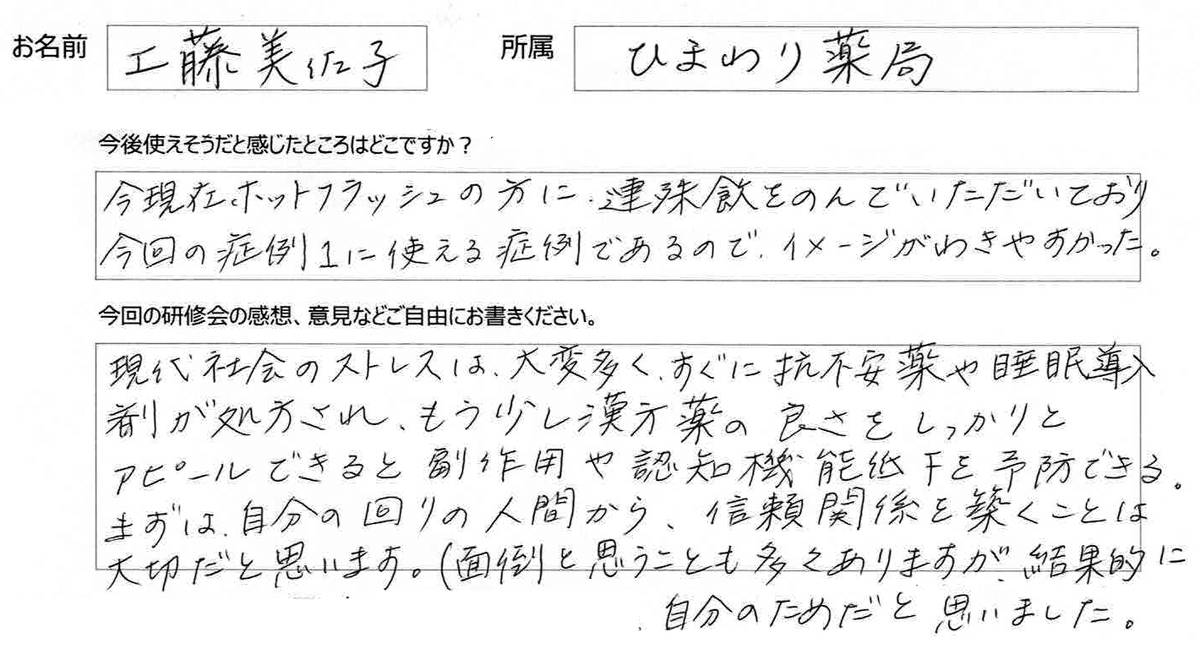 お名前 工藤美佐子 所属 ひまわり薬局
今後使えそうだと感じたところはどこですか？
今現在、ホットフラッシュの方に、連珠飲をのんでいただいており
今回の症例1に使える症例であるので、イメージがわきやすかった。
今回の研修会の感想、意見などご自由にお書きください。
現代社会のストレスは、大変多く、すぐに抗不安薬や睡眠導入
剤が処方され、もう少し漢方薬の良さをしっかりと
アピールできると副作用や認知機能低下を予防できる。
まずは、自分の回りの人間から、信頼関係を築くことは
大切だと思います。(面倒と思うことも多くありますが、結果的に
自分のためだと思いました。